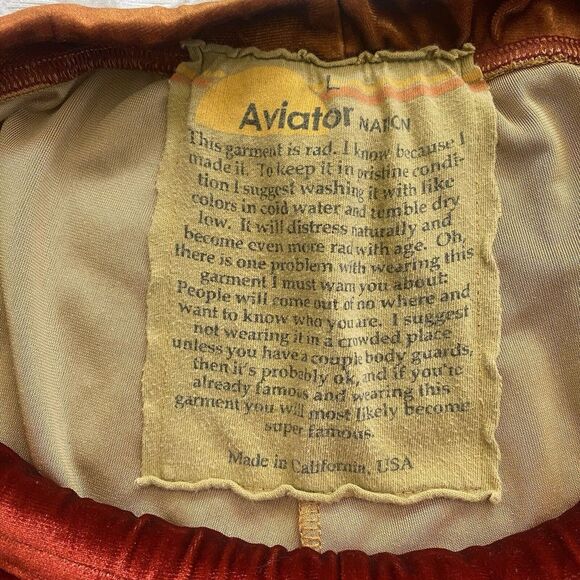 L
Aviator NATION
This garment is rad. I know, because I
made it. To keep it in pristine condi-
tion I suggest washing it with like
colors in cold water and tumble dry
low. It will distress naturally and
become even more rad with age. Oh,
there is one problem with wearing this
garment I must warn you about:
People will come out of no where and
want to know who you are. I suggest
not wearing it in a crowded place
unless you have a couple body guards,
then it's probably ok, and if you're
already famous and wearing this
garment you will most likely become
super famous.
Made in California, USA